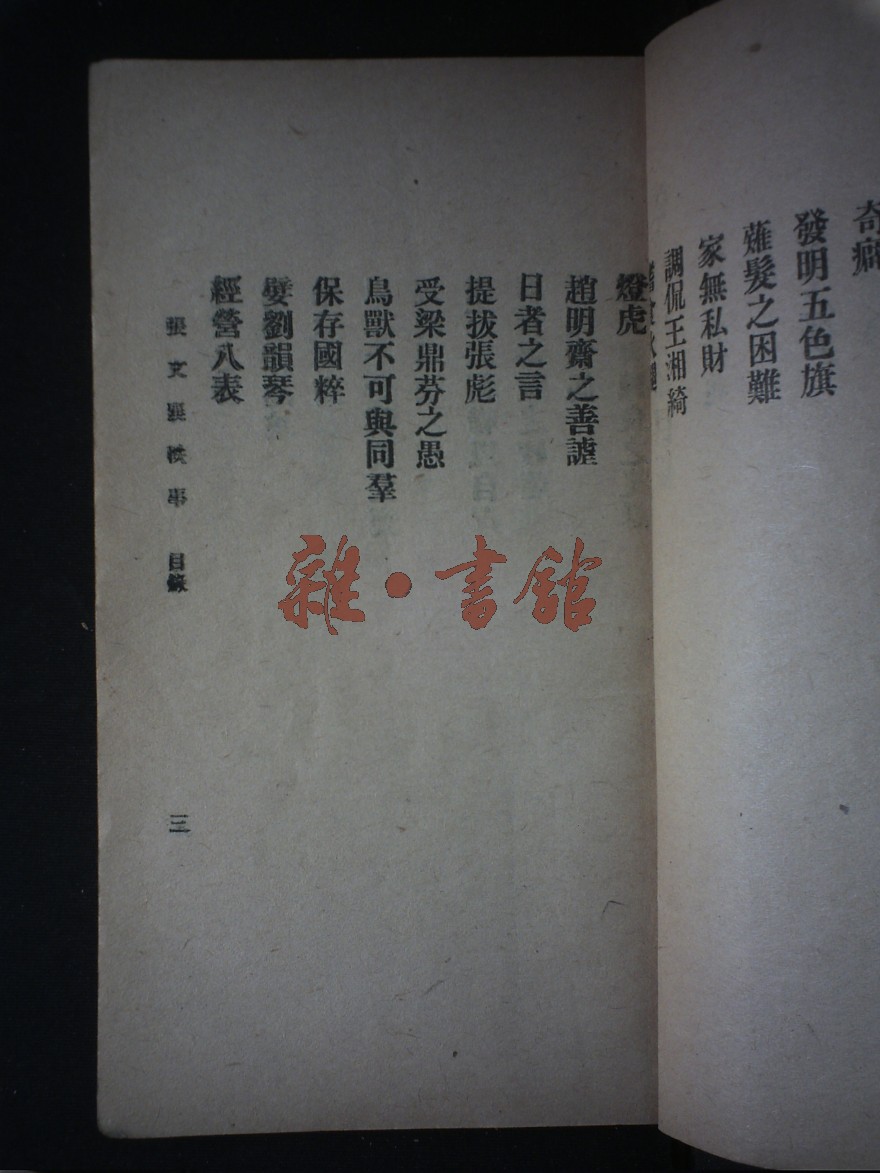 奇癖
發明五色旗
薙髮之困難
家無私財
調侃王湘綺
燈虎
趙明齋之善謔
日者之言
提拔張彪
受梁鼎芬之愚
鳥獸不可與同羣
保存國粹
嬖劉韻琴
經營八表
張文襄軼事 目錄
三
雜·書館